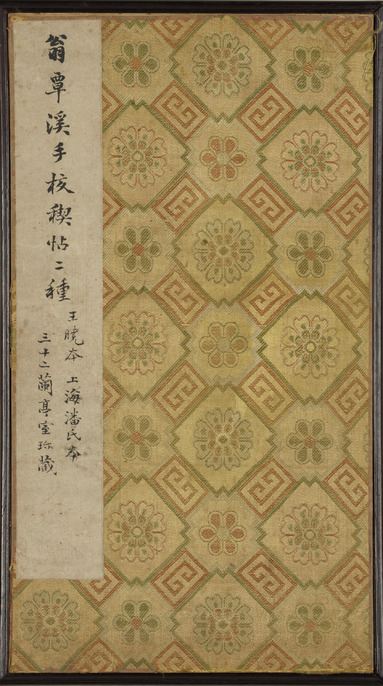 翁覃溪手校禊帖二種
王曉本 上海潘氏本
三十二蘭亭室珍藏